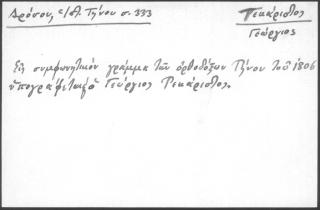 Δρόσου, ἱστ. Τήνου σ. 333
Φεκάριστος
Γεώργιος
Εἰς συμφωνητικὸν γράμμα τῶν ὀρθοδόξων Τήνου τοῦ 1806
ὑπογράφεται ὁ Γεώργιος Φεκάριστος.